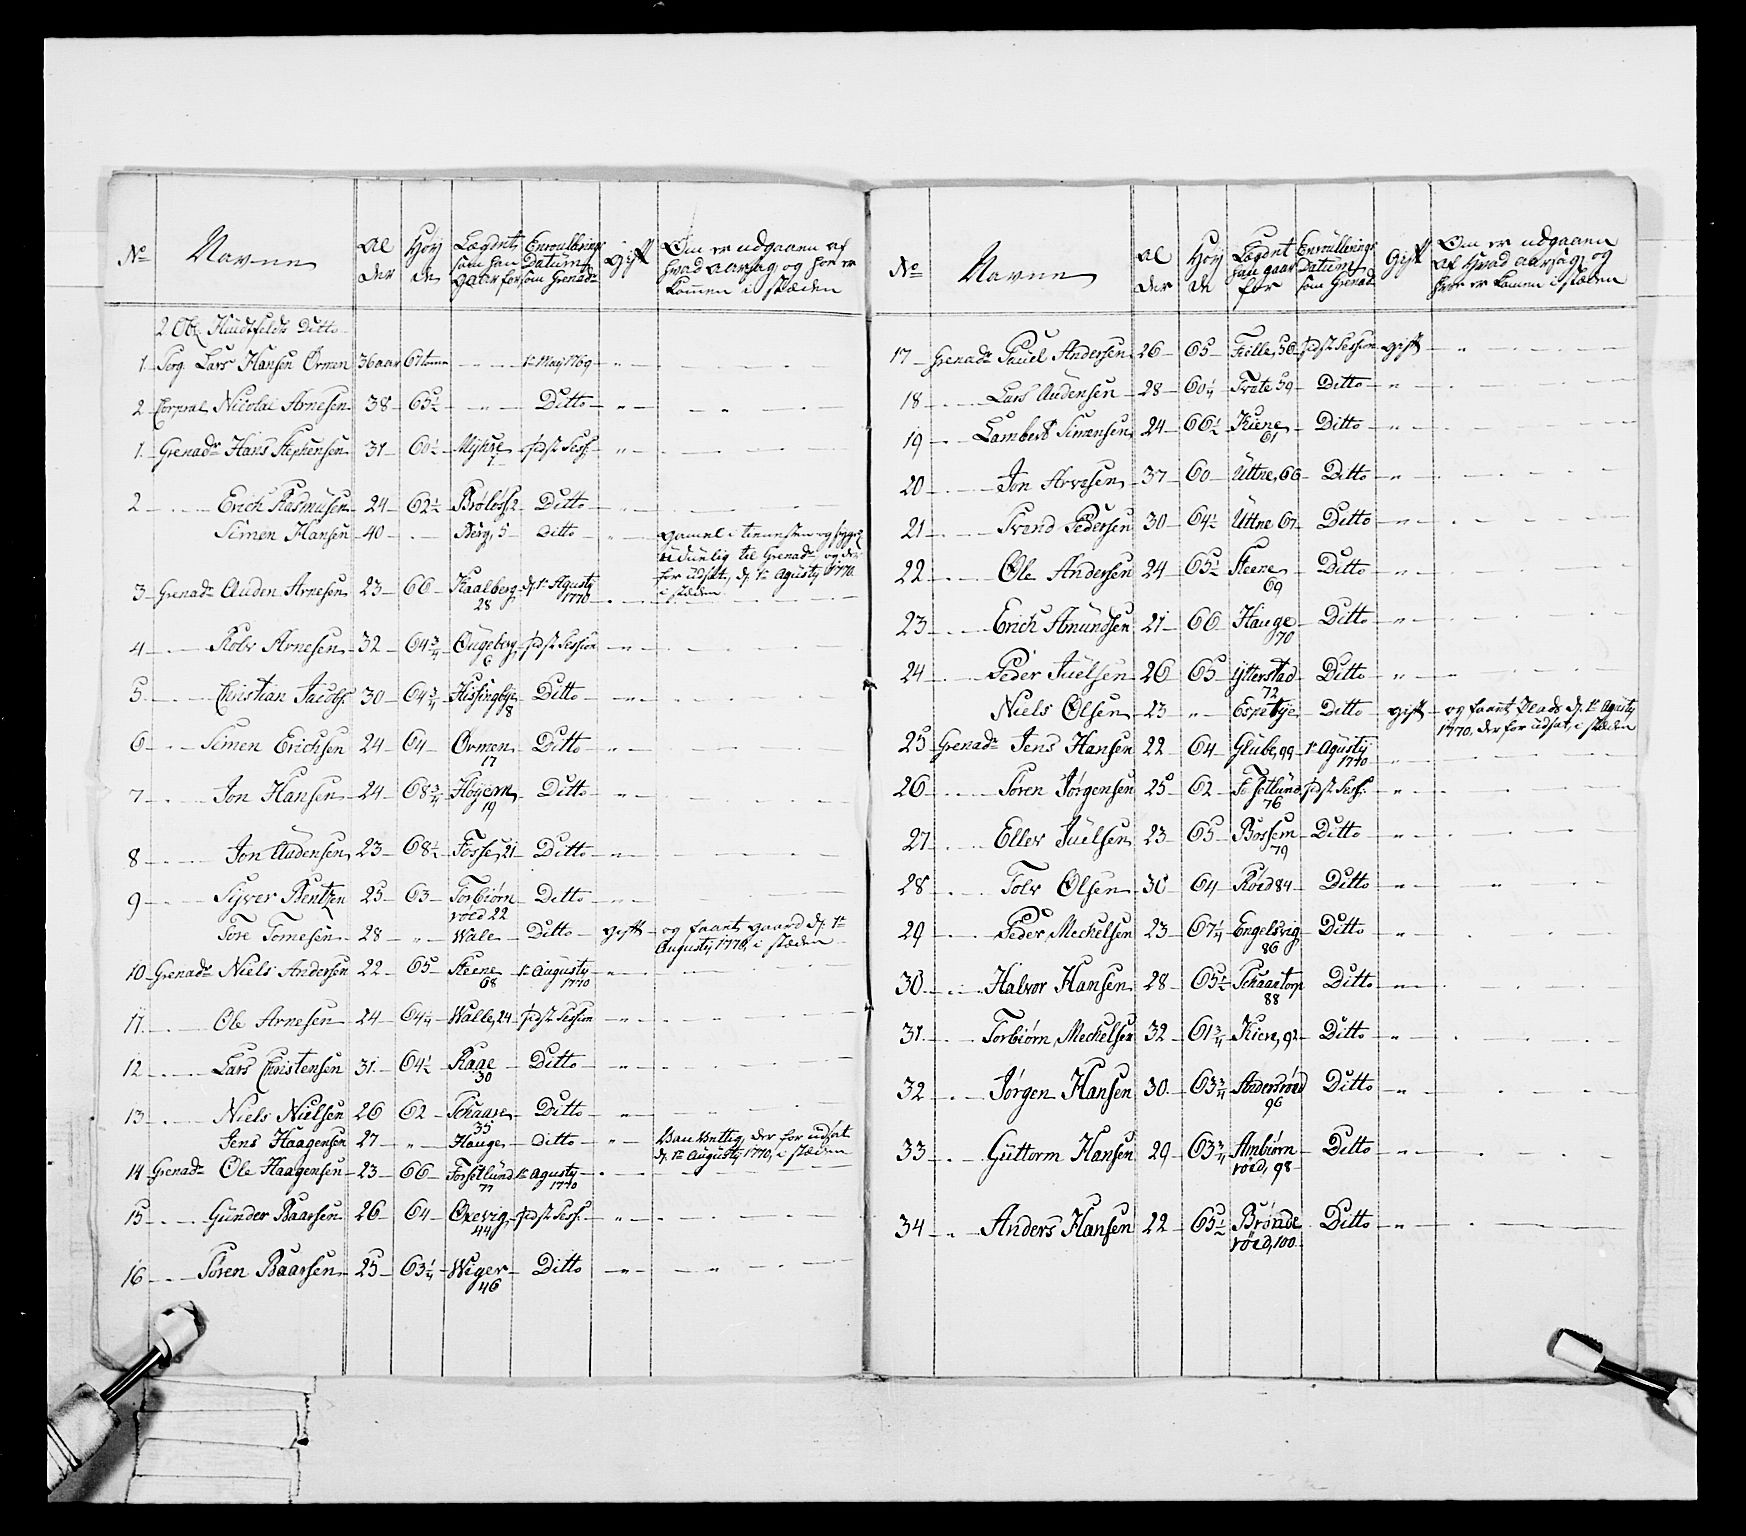 No Navne Al der Høy de Lægdet som han gaar for Enroullerings Datum som Grenadr Gift Om er udgaaen af hvad aarsag og hvor er kommen i stæden
2 Obl. Huidtfelds Ditto
1 Serg. Lars Hansen Ormen 36 aar 1t May 1769
2 Corporal Nicolai Arnesen 38 65½ Ditto
1 Grenadr Hans Stephensen 31 60½ Myhre 1 sidst Sess:
2 Erich Rasmusen 24 62½ 2 Ditto
Simen Hansen 40 Berg, 5 Ditto gamel i tienesten og
til Grenadr og der
for udsat, d. 1t Agusty 1770
i stæden
3 Grenadr Auden Arnesen 23 66 Kaalberg 28 d. 1t Agusty 1770
4 Rolv Arnesen 32 64¾ 6 sidst Session
5 Christian Jacobs. 30 64¾ Hissingbye 8 Ditto
6 Simen Erichsen 24 64 Ormen 17 Ditto
7 Jon Hansen 24 68¾ Høyern 19 Ditto
8 Jon Audensen 23 68½ Fosse, 21 Ditto
9 Syver Bentzen 25 63 Torbiørn røed 22 Ditto
Tore Tomesen 28 Wale Ditto gift og faaet gaard d. 1t
Augusty 1770, i stæden
10 Grenadr Niels Andersen 22 65 Steene 68 1t Augusty 1770
11 Ole Arnesen 24 64¼ Walle, 24 sidst Session
12 Lars Christensen 31 64½ Raae 30 Ditto
13 Niels Nielsen 26 62 Schaare 35 Ditto
Jens Haagensen 27 Hauge Ditto Van Vittig, der for udsat
d. 1t Augusty 1770, i stæden
14 Grenadr Ole Haagensen 23 66 Forsetlund 77 1t Agusty 1770
15 Gunder Baarsen 26 64 Oxevig 44 sidst Sess:
16 Søren Baarsen 25 63¼ Wiger 46 Ditto
No Navne Al der Høy de Lægdet han gaar for Enroullerings Datum som Grenad Gift Om er udgaaen af hvad aarsag og hvor er komen i stæden
17 Grenadr Pauel Andersen 26 65 56 sidst Session gift
18 Lars Audensen 28 60¼ 59 Ditto
19 Lambert Simensen 24 66½ Kiene 61 Ditto
20 Jon Arvesen 37 60 Uttne, 66 Ditto
21 Svend Pedersen 30 64½ Uttne 67 Ditto
22 Ole Andersen 24 65½ Steene 69 Ditto
23 Erich Amundsen 21 66 Hauge 70 Ditto
24 Peder Juelsen 26 65 Ytterstad 72 Ditto
Niels Olsen 23 Espetye Ditto gift og faaet Plads d. 1t Agusty
1770, der for udsat, i stæden
25 Grenadr Jens Hansen 22 64 Glube, 99 1t Agusty 1770
26 Søren Jørgensen 25 62 76 sidst Sess:
27 Eller Juelsen 23 65 Bossem 79 Ditto
28 Tolv Olsen 30 64 Røed 84 Ditto
29 Peder Meckelsen 23 67¼ Engelsvig 86 Ditto
30 Halvor Hansen 28 65½ Schaartorp 88 Ditto
31 Torbiørn Meckelsen 32 61¾ Kien, 92 Ditto
32 Jørgen Hansen 30 63¾ Andersrøed 96 Ditto
33 Guttorm Hansen 29 63¾ Ambiørn røed, 98 Ditto
34 Anders Hansen 22 65½ Brønde røed, 100 Ditto